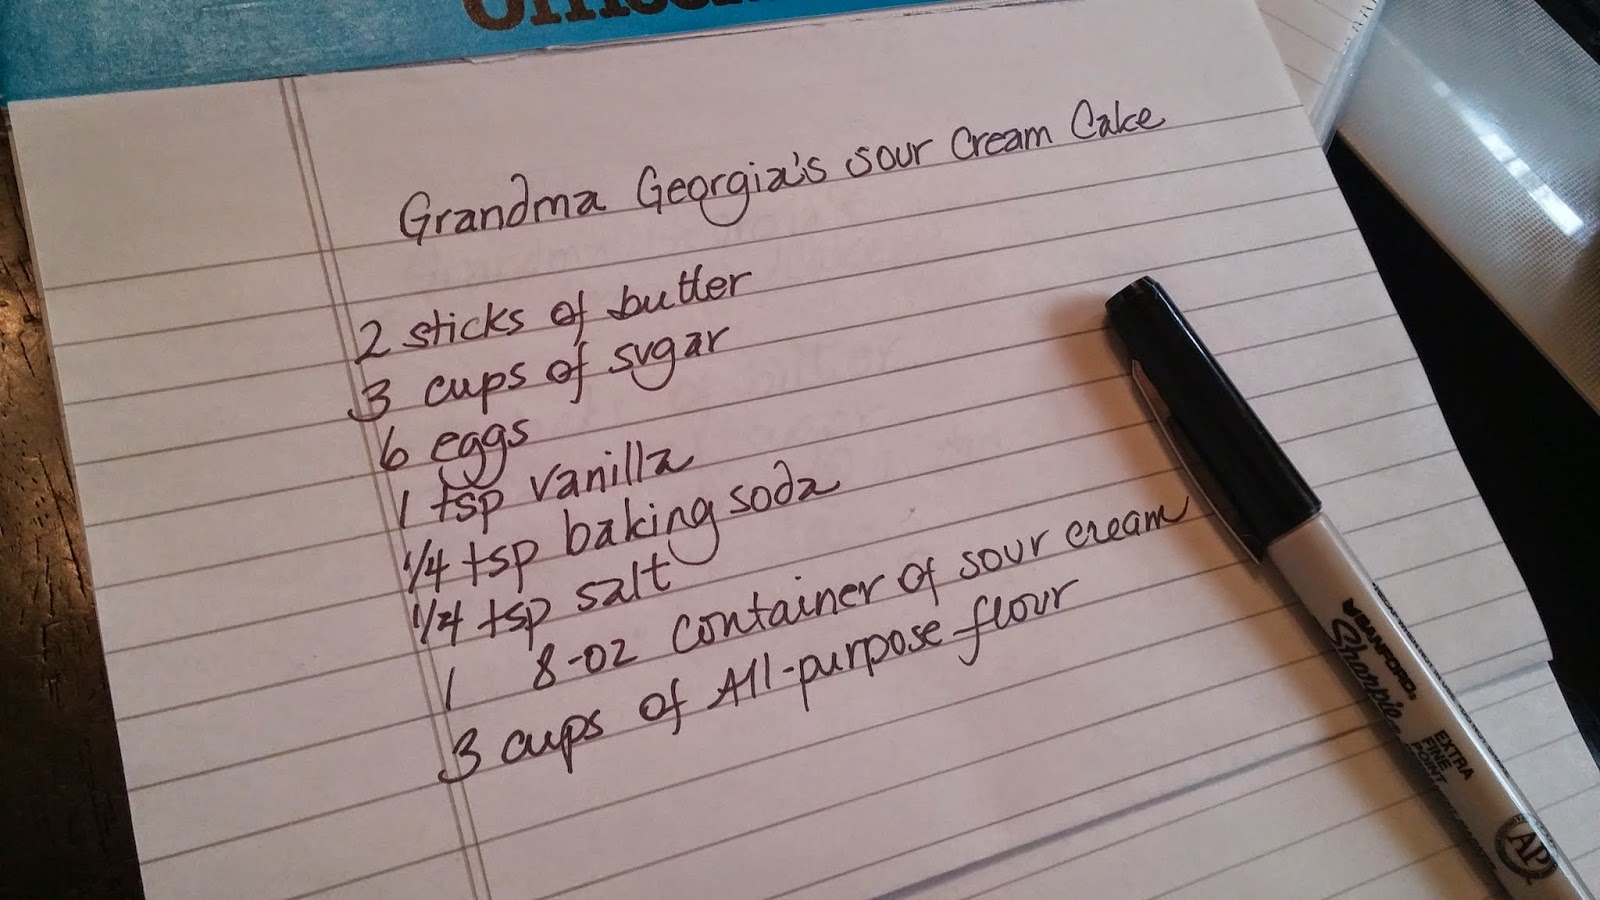 Grandma Georgia's sour Cream Cake
2 sticks of butter
3 cups of sugar
6 eggs
1 tsp vanilla
1/4 tsp baking soda
1/4 tsp salt
1 8-oz container of sour cream
3 cups of All-purpose flour
SANFORD®
Sharpie
EXTRA
FINE
POINT
AP